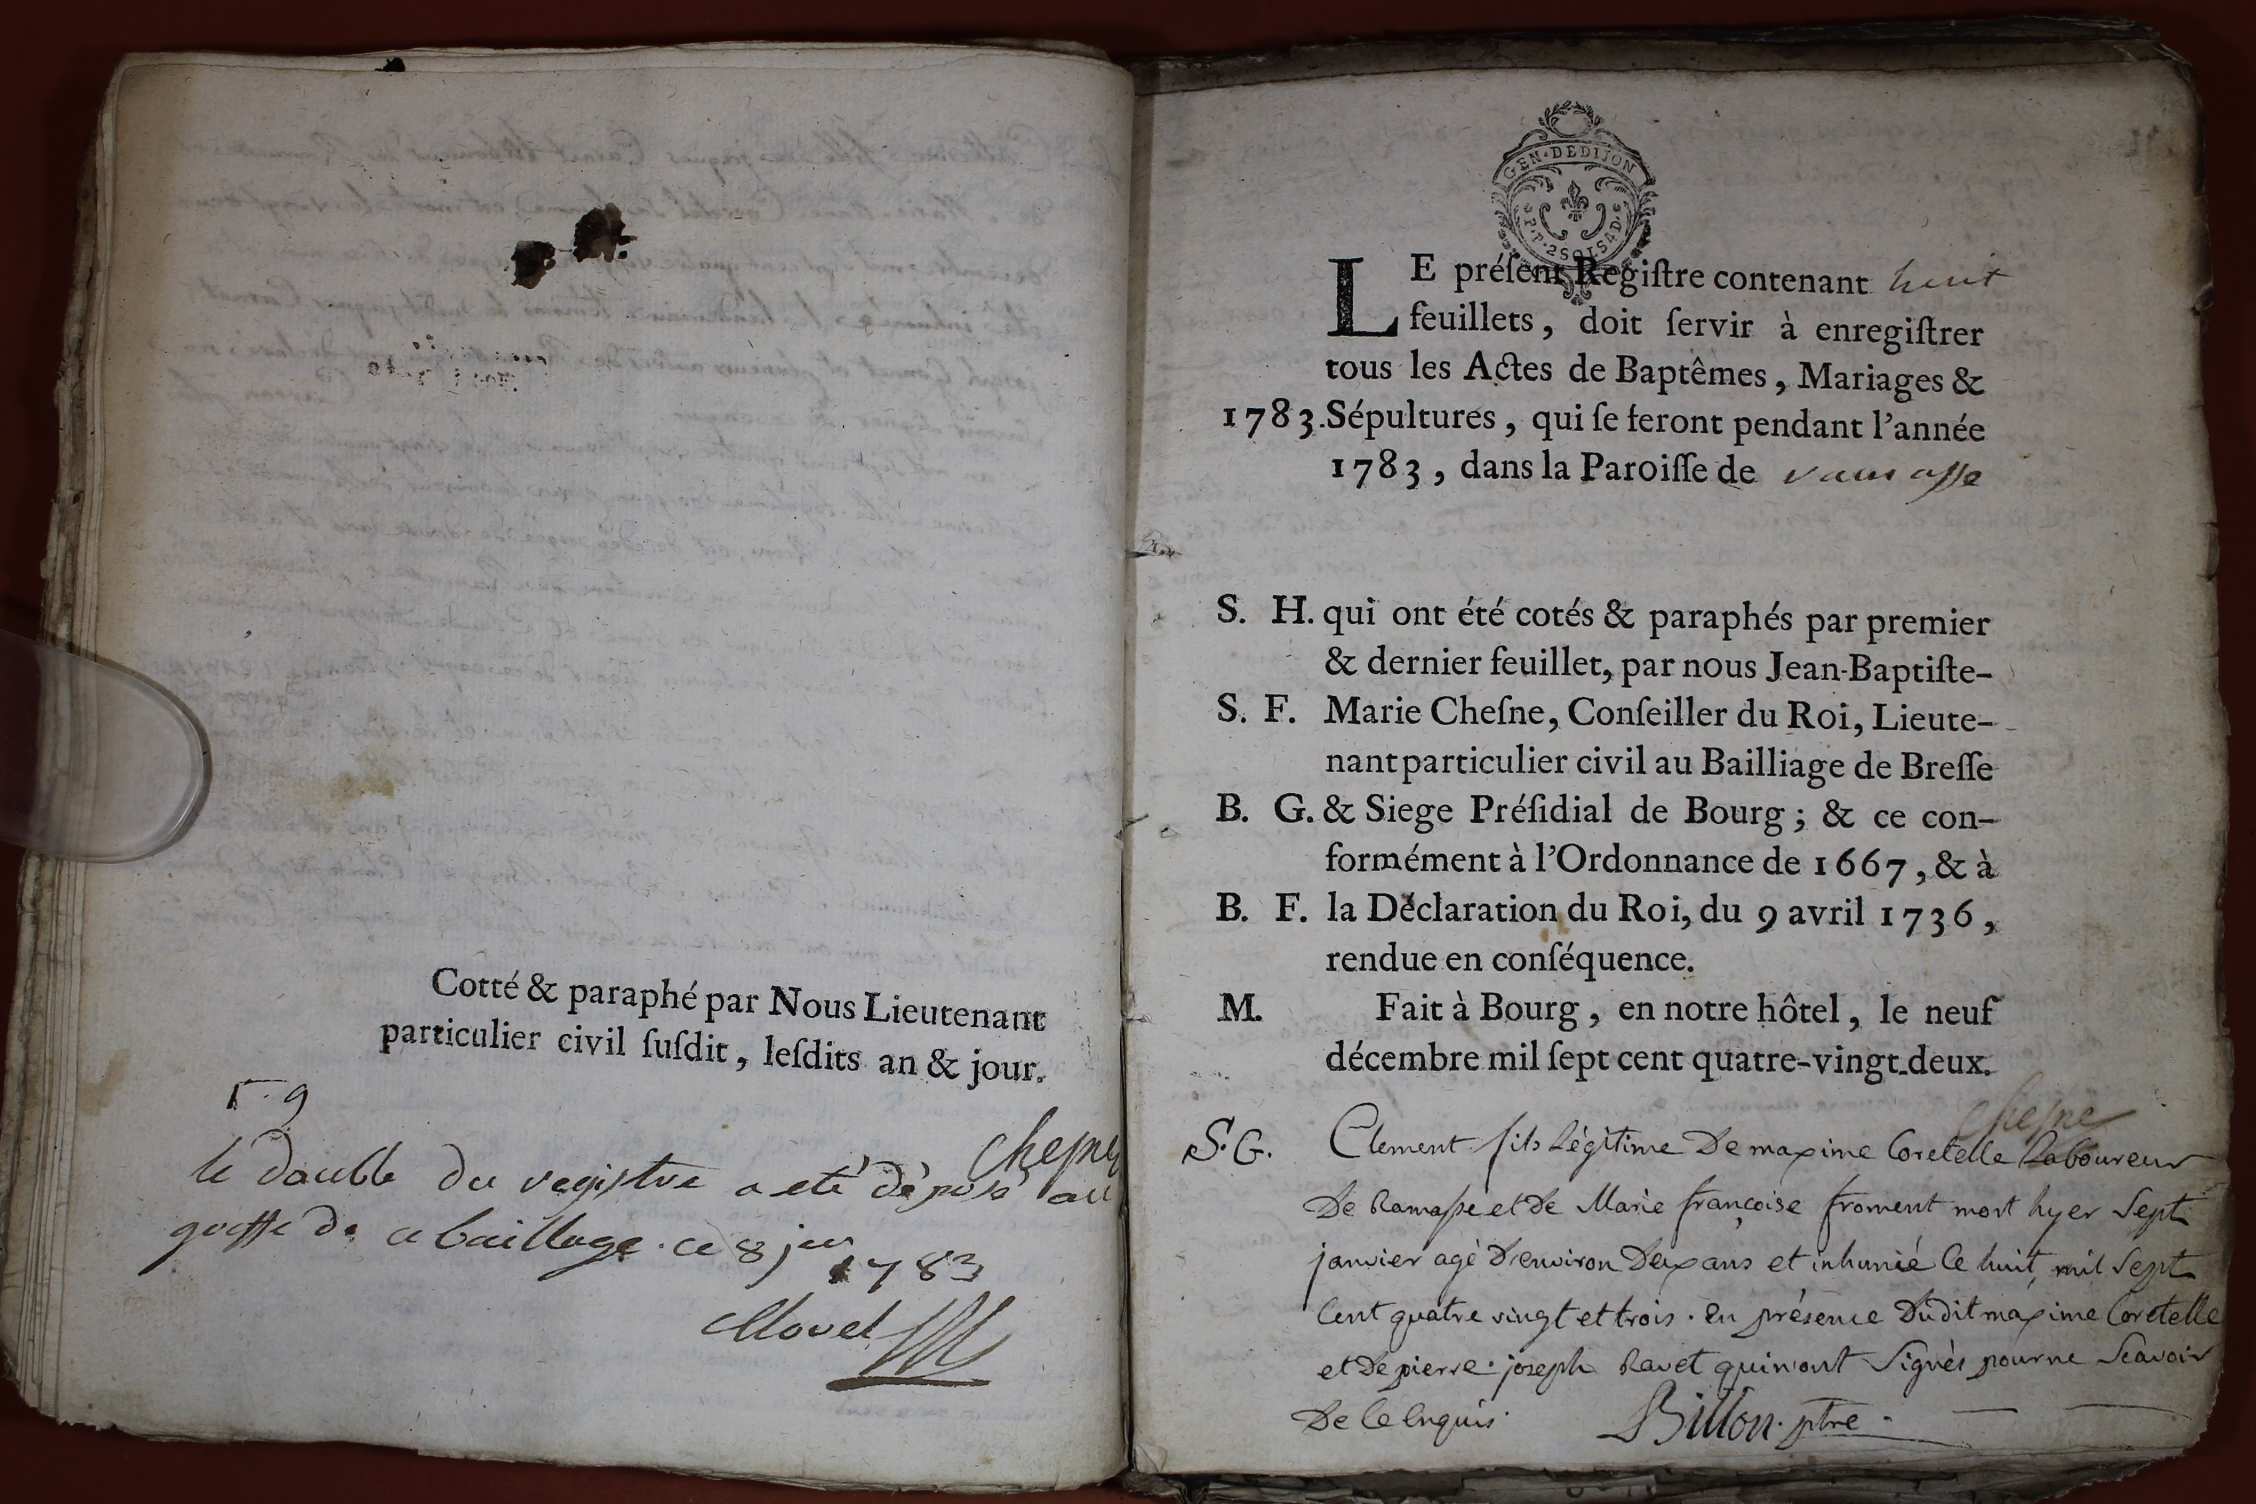 Cotté & paraphé par Nous Lieutenant
particulier civil ſuſdit, leſdits an & jour.
Chesne
le double du registre a eté déposé au
greffe de ce bailliage. ce 8 jer
1783
Morel
GEN·DEDIJON
P.P.2SOIS4D.
LE préſent Regiſtre contenant huit
feuillets, doit ſervir à enregiſtrer
tous les Actes de Baptêmes, Mariages &
1783. Sépultures, qui ſe feront pendant l'année
1783, dans la Paroiſſe de
S. H. qui ont été cotés & paraphés par premier
& dernier feuillet, par nous Jean-Baptiſte-
S. F. Marie Cheſne, Conſeiller du Roi, Lieute-
nant particulier civil au Bailliage de Breſſe
B. G. & Siege Préſidial de Bourg; & ce con-
formément à l'Ordonnance de 1667, & à
B. F. la Déclaration du Roi, du 9 avril 1736,
rendue en conſéquence.
M. Fait à Bourg, en notre hôtel, le neuf
décembre mil ſept cent quatre-vingt-deux.
Chesne
S. G. Clement fils Légitime De maxime Coretelle Laboureur
De Ramasse et De Marie françoise froment mort hyer Sept
janvier agé D'environ Deux ans et inhumé le huit, mil Sept
Cent quatre vingt et trois. En présence Dudit maxime Coretelle
et De pierre. joseph Ravet qui n'ont Signés pour ne Scavoir
De Ce Enquis. Billon. ptre.